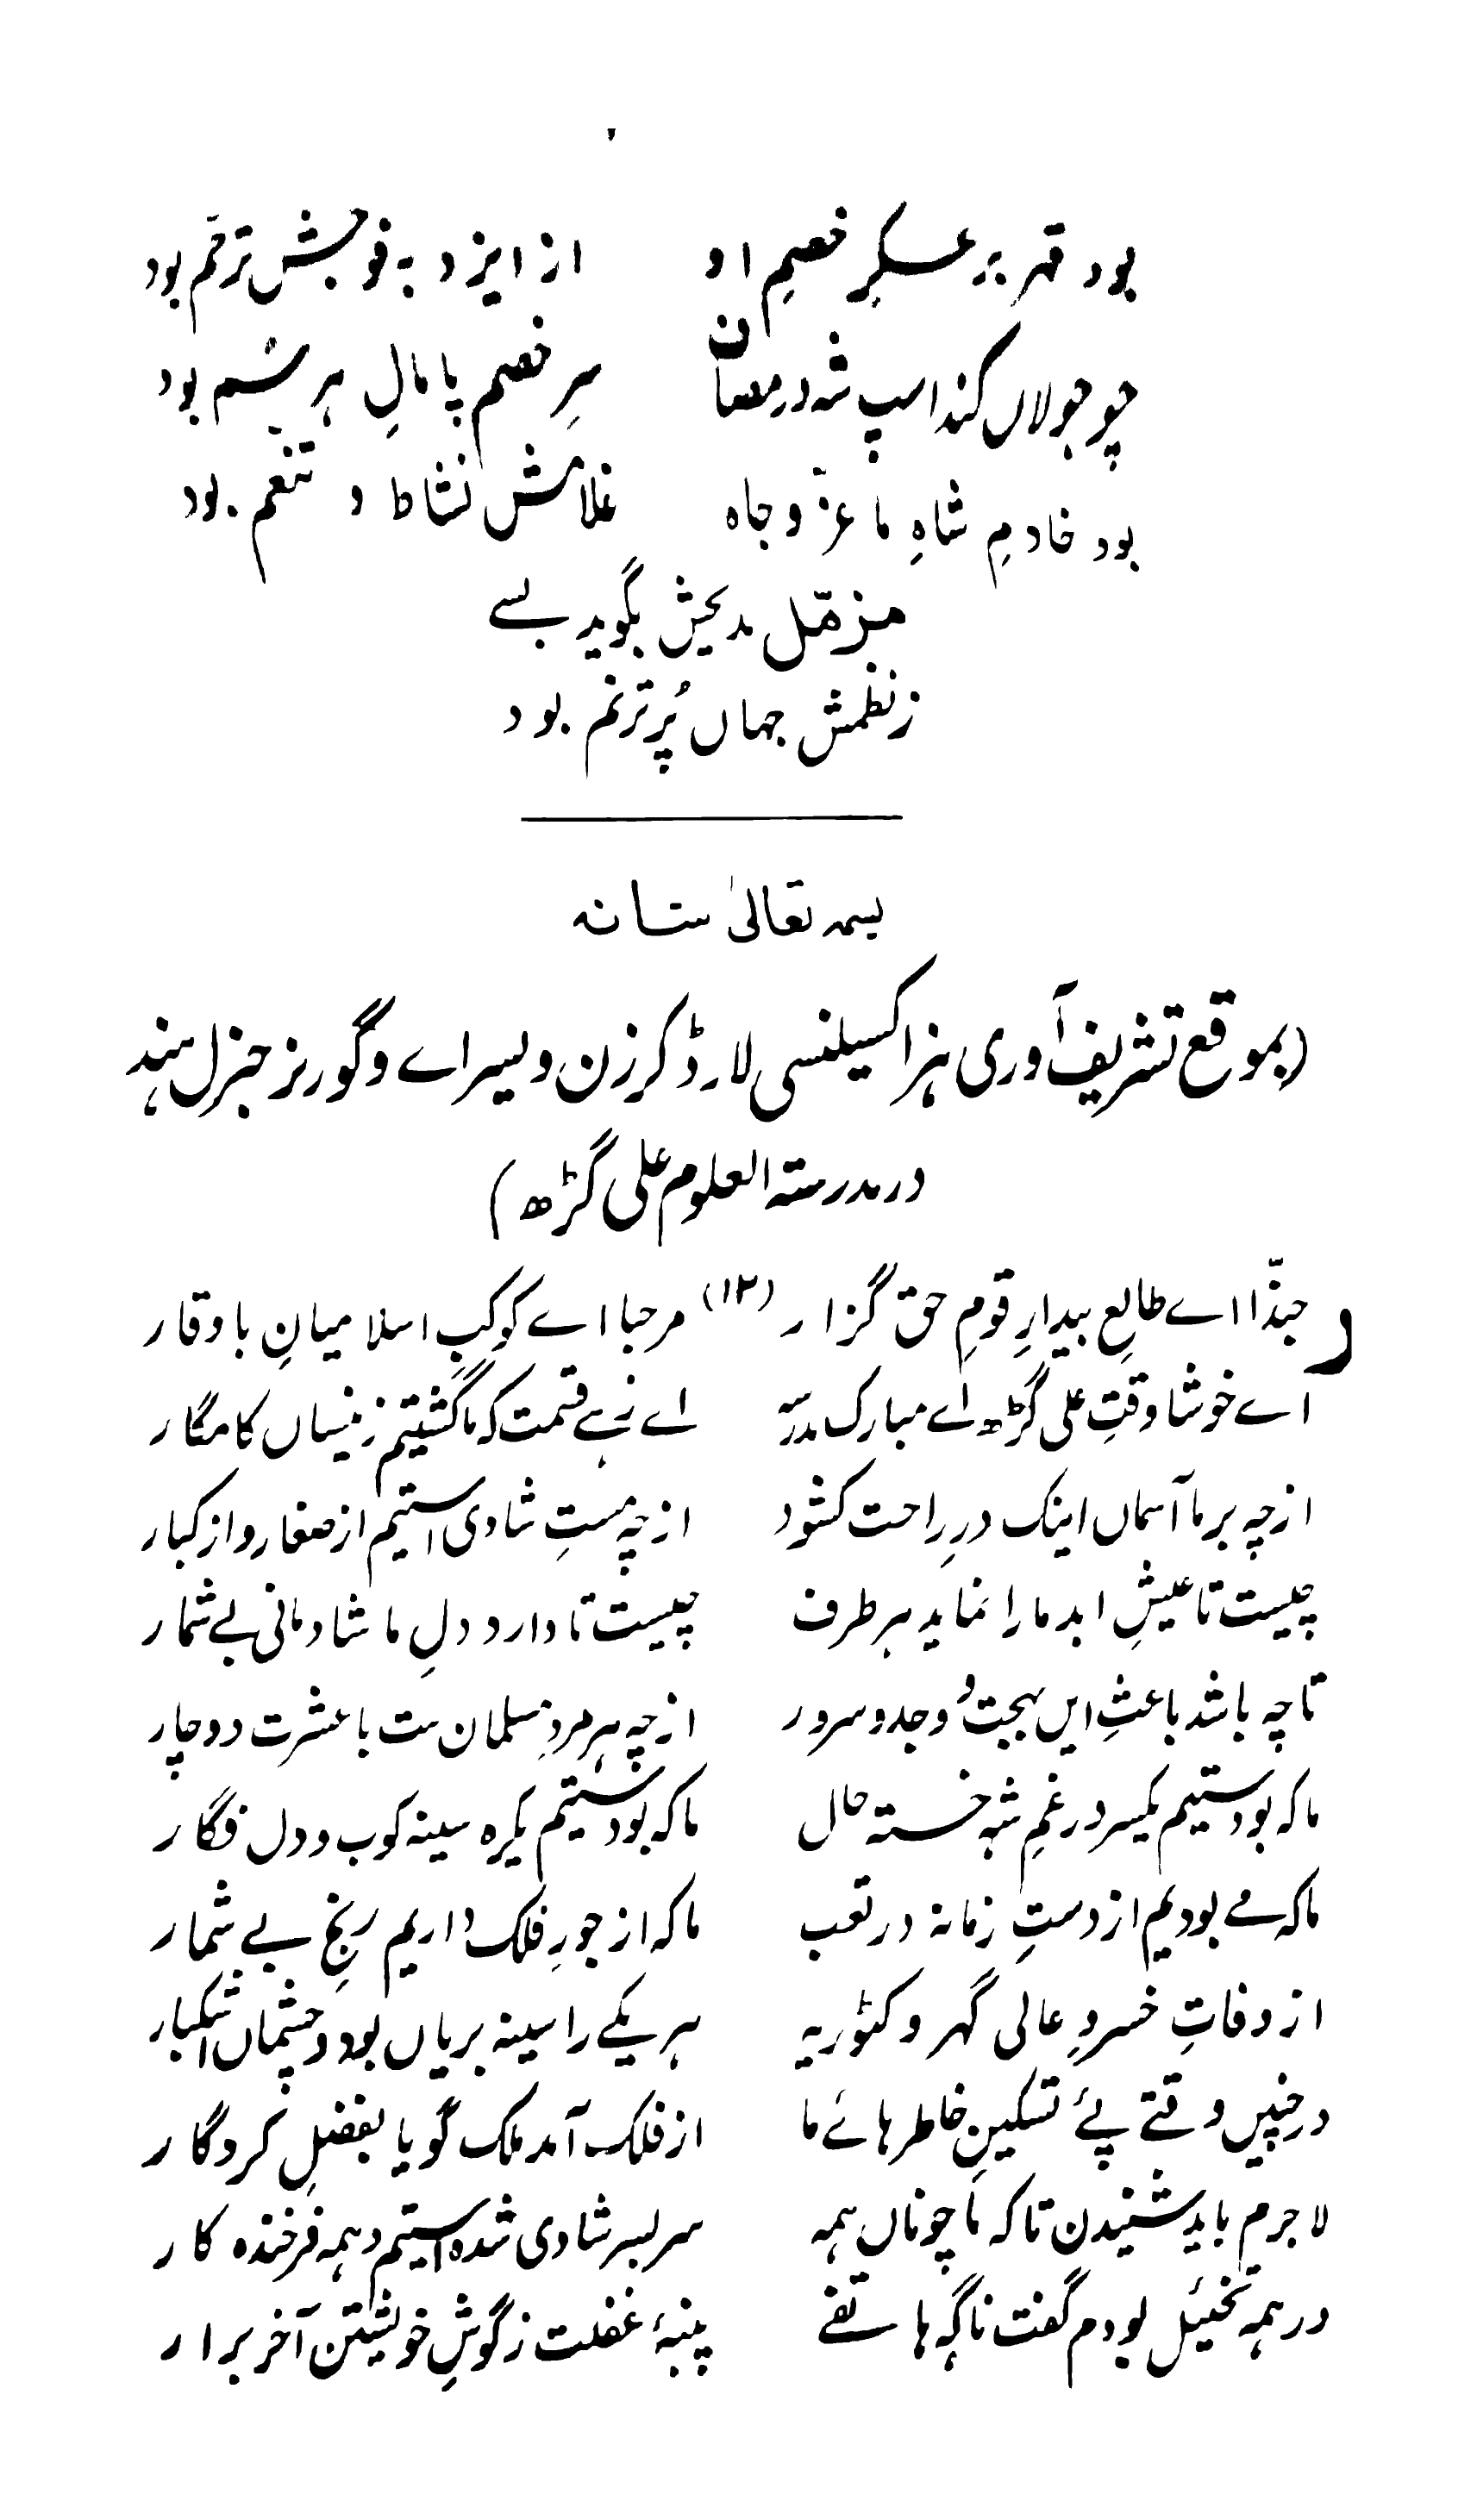 بود قہر بر عسکرِ خصمِ او از ایزد بہ فوجش ترحّم بود
چو جولاں کند اسپِ شہ در مصاف سرِ خصم پامالِ ہر سُم بود
بود خادمِ شاہِ ما عزّ و جاہ غلامش نشاط و تنعّم بود
مزمّل مدیحش بگوید بسے
ز نظمش جہاں پُر ترنّم بود
بسمہ تعالیٰ شانہ
(بموقع تشریف آوری ہزاکسیلنسی لارڈ کرزن، ویسراے و گورنر جنرل ہند،
در مدرستہ العلوم علی گڑھ)
حبّذا اے طالعِ بیدارِ قومِ حق گزار (۱۲) مرحبا اے کوکبِ اسلامیانِ باوقار
اے خوشا وقتِ علی گڑھ اے مبارک مدرسہ اے زہے قسمت کہ ما گشتیم زینساں کامگار
از چہ بر ما آسماں اینک درِ راحت کشود از چہ مستِ شادی استیم از صغار و از کبار
چیست تا عیشِ ابد ما را نماید ہر طرف چیست تا دارد دلِ ما شادمانی بے شمار
تا چہ باشد باعثِ ایں بہجت و وجد و سرور از چہ ہر مردِ مسلمان ست با عشرت دوچار
ما کہ بودستیم یکسر در غمِ شہ خستہ حال ما کہ بودستیم یکرہ سینہ کوب و دل فگار
ما کہ مے بودیم از دستِ زمانہ در تعب ما کہ از جورِ فلک داریم رنجِ بے شمار
از وفاتِ خسروِ عالی گہر وکٹوریہ ہر یکے را سینہ بریاں بود و چشماں اشکبار
در چنیں وقتے پئے تسکینِ خاطرہائے ما از فلک آمد ملک گویا بفضلِ کردگار
لاجرم باید شنیدن تا کہ ما چوناں ہمہ سر بسر شادی شدہ استیم و ہمہ فرخندہ کار
در ہمہ تخیّل بودم گفت ناگہ ہاتفے پنبۂ غفلت ز گوشِ خویشتن آخر برار